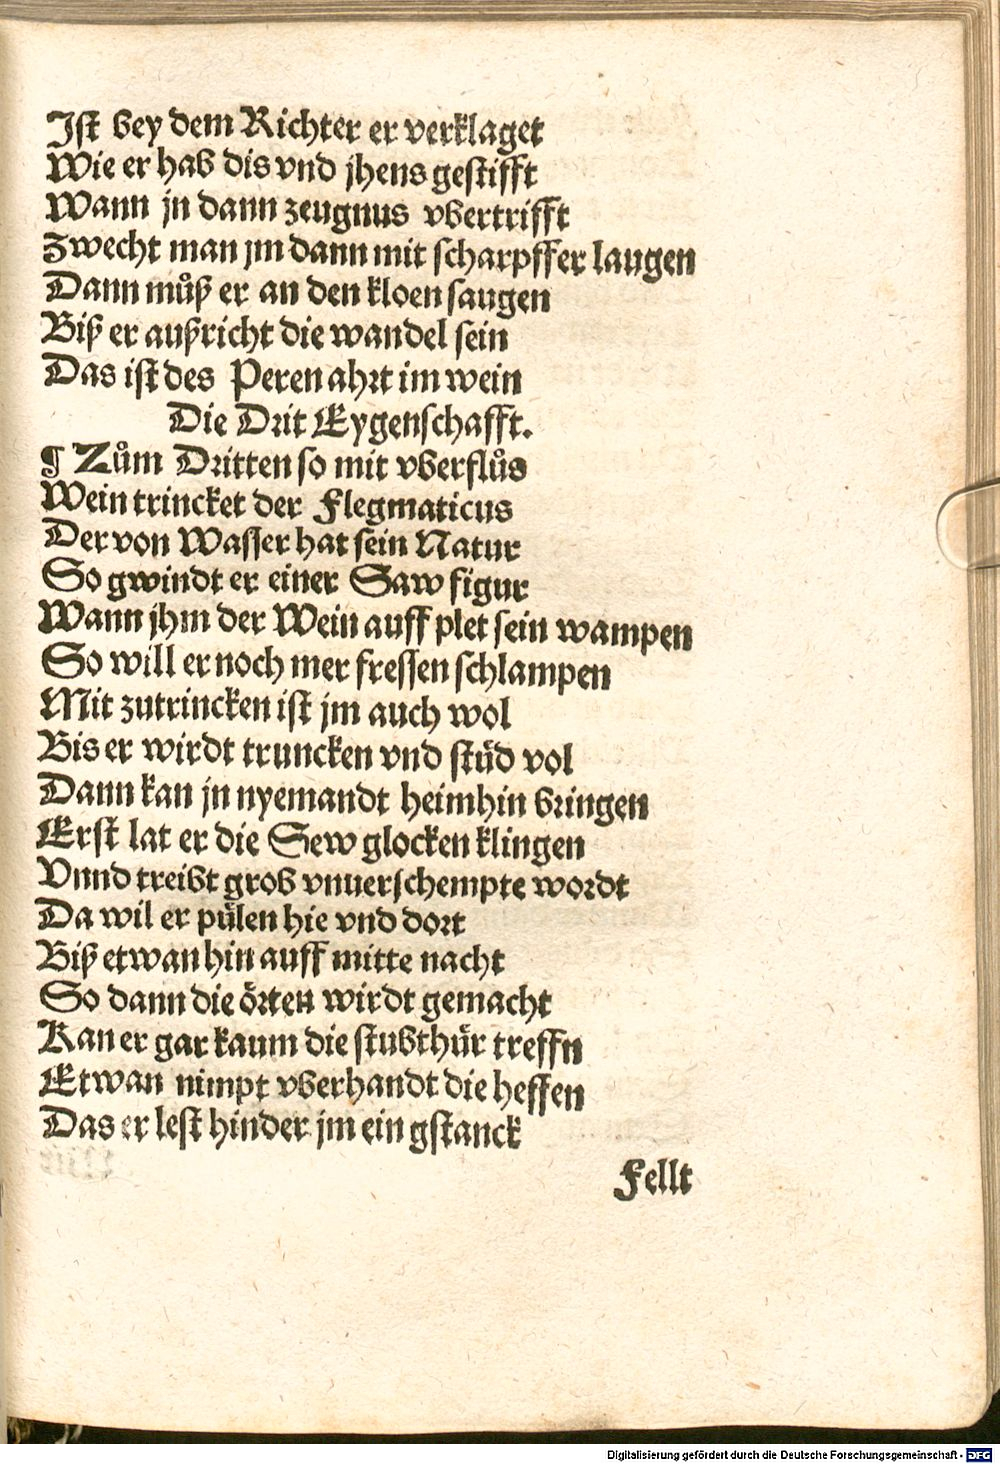 Ist bey dem Richter er verklaget
Wie er hab dis vnd jhens gestifft
Wann jn dann zeugnus vbertrifft
Zwecht man jm dann mit scharpffer laugen
Dann můß er an den kloen saugen
Biß er außricht die wandel sein
Das ist des Peren ahrt im wein
Die Drit Eygenschafft.
¶ Zům Dritten so mit vberflůs
Wein trincket der Flegmaticus
Der von Wasser hat sein Natur
So gwindt er einer Saw figur
Wann jhm der Wein auff plet sein wampen
So will er noch mer fressen schlampen
Mit zutrincken ist jm auch wol
Bis er wirdt truncken vnd stüd vol
Dann kan jn nyemandt heimhin bringen
Erst lat er die Sew glocken klingen
Vnnd treibt grob vnuerschempte wordt
Da wil er pülen hie vnd dort
Biß etwan hin auff mitte nacht
So dann die örten wirdt gemacht
Kan er gar kaum die stubthür treffn
Etwan nimpt vberhandt die heffen
Das er lest hinder jm ein gstanck
Fellt
Digitalisierung gefördert durch die Deutsche Forschungsgemeinschaft - DFG